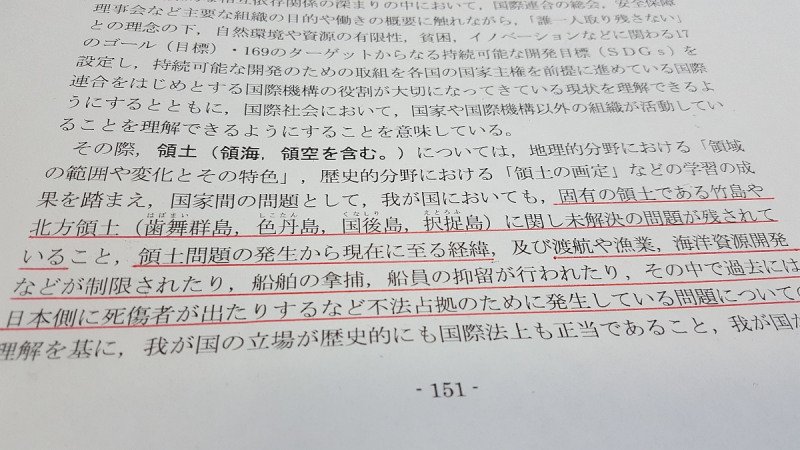 な相互依存関係の深まりの中において，国際連合の総会，安全保障
理事会など主要な組織の目的や働きの概要に触れながら，「誰一人取り残さない」
との理念の下，自然環境や資源の有限性，貧困，イノベーションなどに関わる17
のゴール（目標）・169のターゲットからなる持続可能な開発目標（ＳＤＧｓ）を
設定し，持続可能な開発のための取組を各国の国家主権を前提に進めている国際
連合をはじめとする国際機構の役割が大切になってきている現状を理解できるよ
うにするとともに，国際社会において，国家や国際機構以外の組織が活動してい
ることを理解できるようにすることを意味している。
その際，領土（領海，領空を含む。）については，地理的分野における「領域
の範囲や変化とその特色」，歴史的分野における「領土の画定」などの学習の成
果を踏まえ，国家間の問題として，我が国においても，固有の領土である竹島や
はぼまい しこたん くなしり えとろふ
北方領土（歯舞群島，色丹島，国後島，択捉島）に関し未解決の問題が残されて
いること，領土問題の発生から現在に至る経緯，及び渡航や漁業，海洋資源開発
などが制限されたり，船舶の拿捕，船員の抑留が行われたり，その中で過去には
日本側に死傷者が出たりするなど不法占拠のために発生している問題についての
理解を基に，我が国の立場が歴史的にも国際法上も正当であること，我が国が
- 151 -